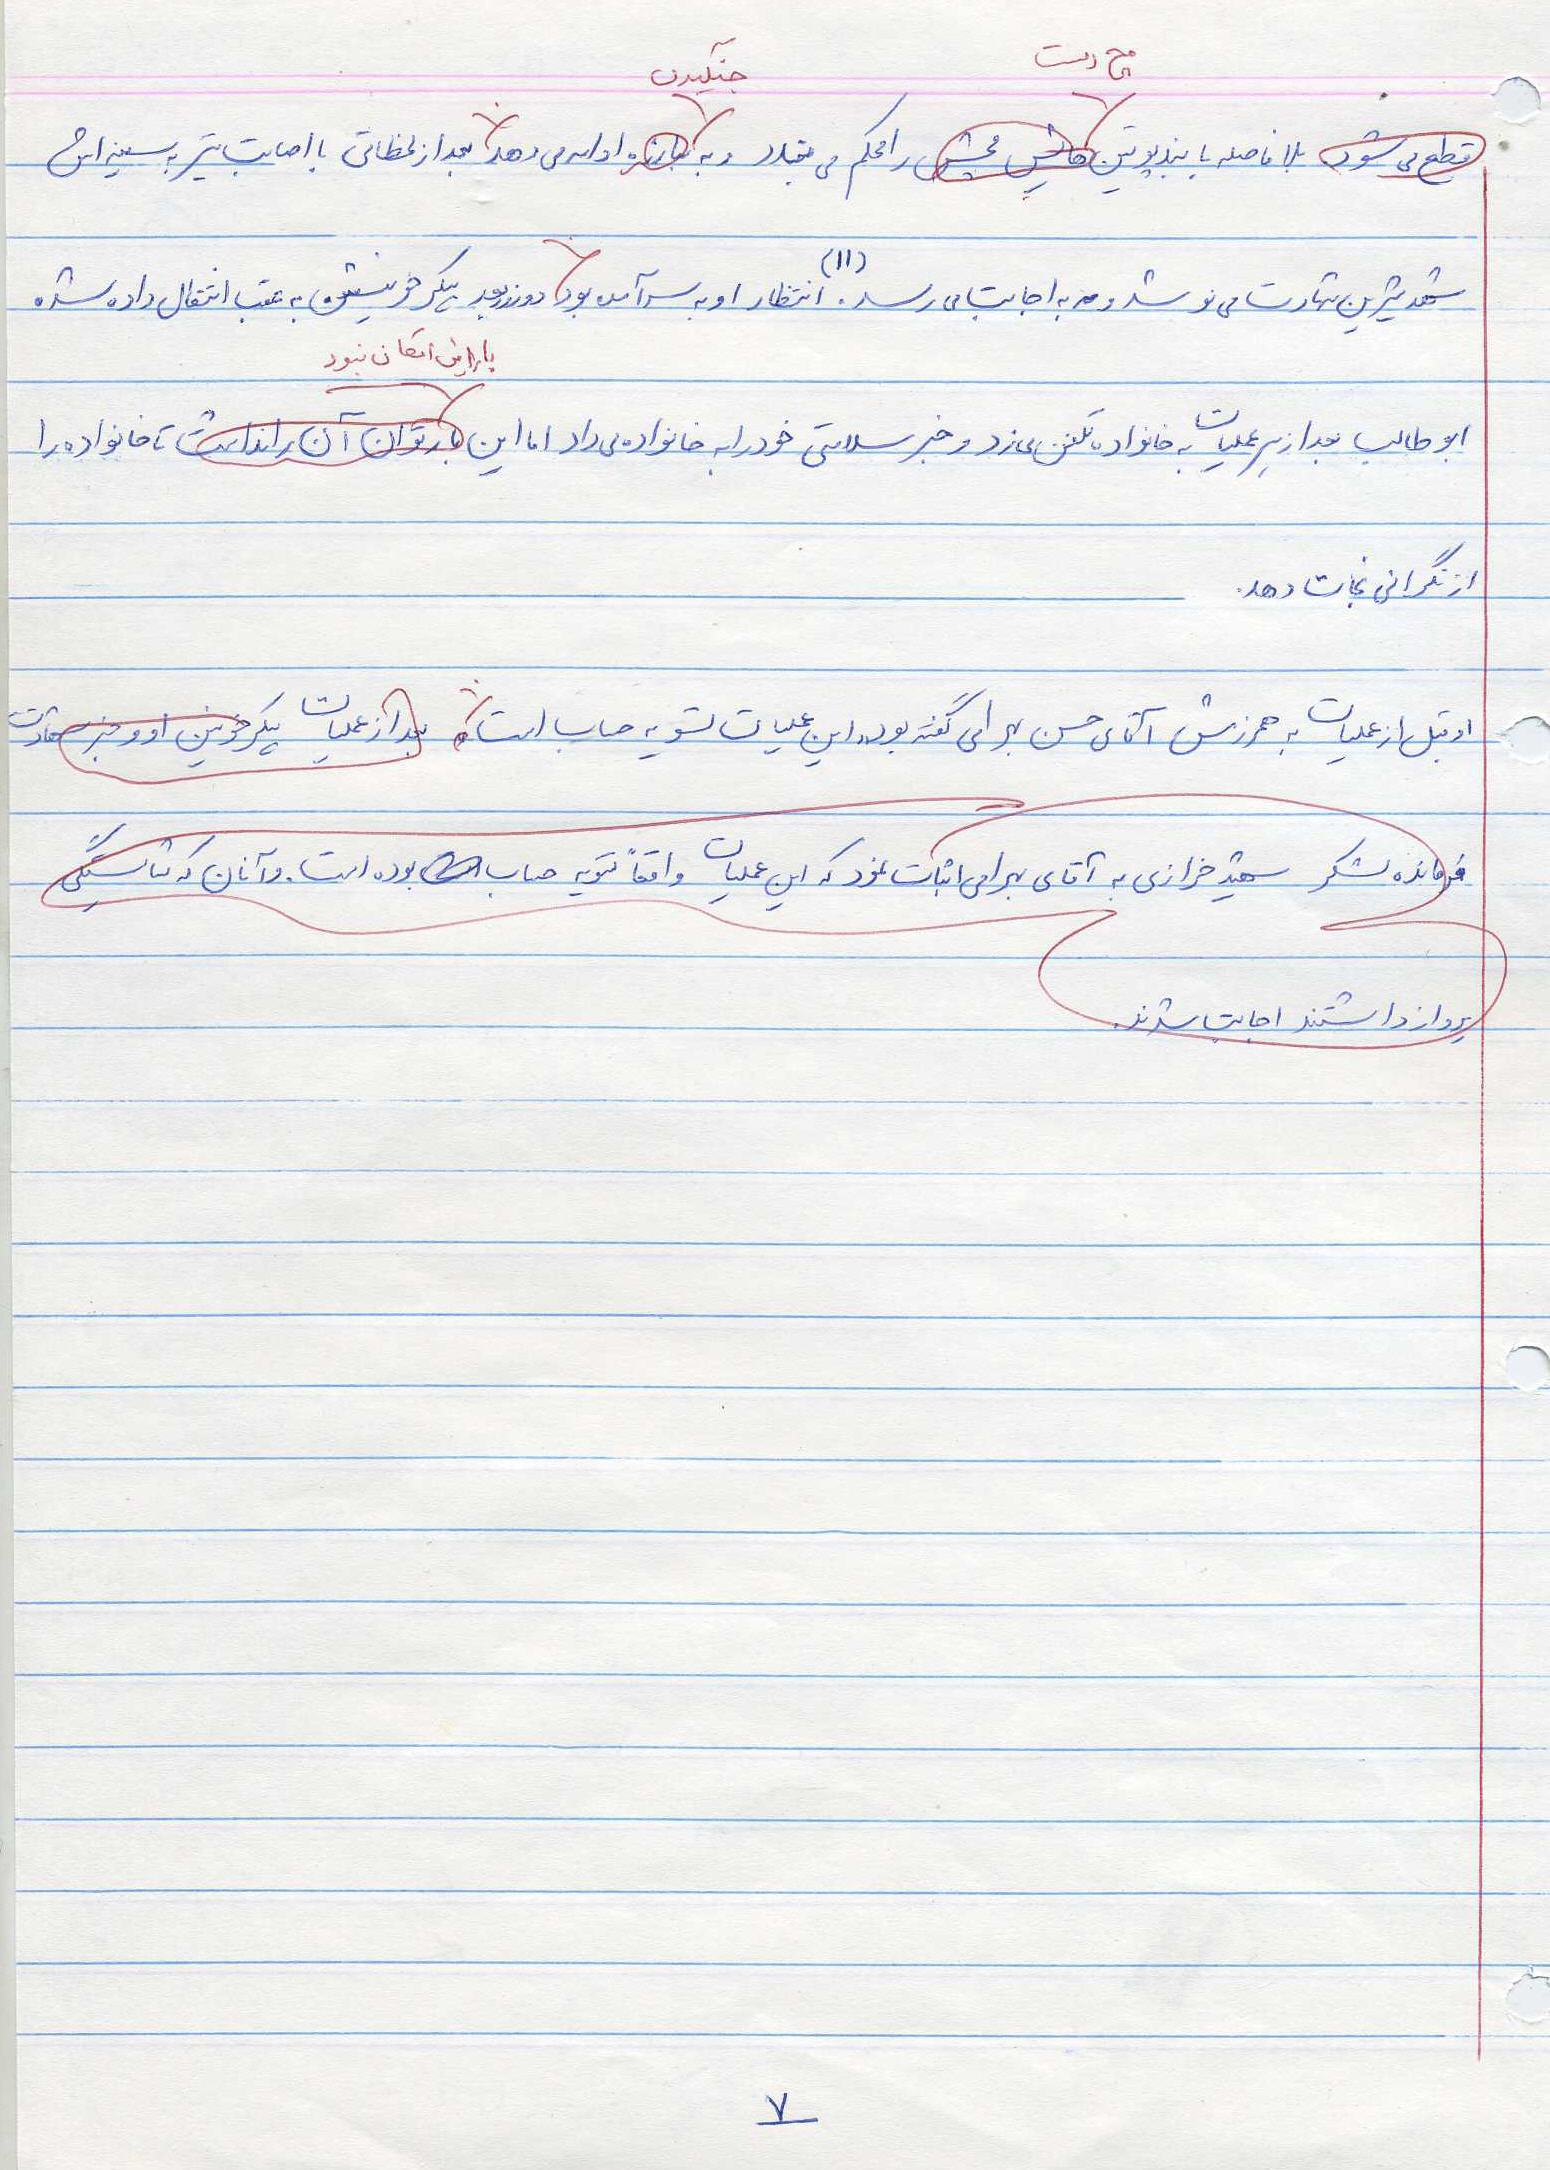 مچ دست
جنگیدن
قطع می شود بلا فاصله با بند پوتین هایش مچش را محکم می بندد و به مبارزه ادامه می دهد بعد از لحظاتی با اصابت تیر به سینه اش
شهد شیرین شهادت می نوشد و به اجابت می رسد. (۱۱) انتظار او به سر آمده بود دو روز بعد پیکر خونینش به عقب انتقال داده شده
بار این امکان نبود
ابوطالب بعد از هر عملیات به خانواده تلفن می زد و خبر سلامتی خود را به خانواده می داد اما این بار توان آن را نداشت تا خانواده را
از نگرانی نجات دهد.
او قبل از عملیات به همرزمش آقای حسن بهرامی گفته بود، این عملیات تسویه حساب است بعد از عملیات پیکر خونین او و خبر شهادت
فرمانده لشکر شهید خرازی به آقای بهرامی اثبات نمود که این عملیات واقعاً تسویه حساب بوده است. و آنان که شایستگی
پرواز داشتند اجابت شدند.
۷